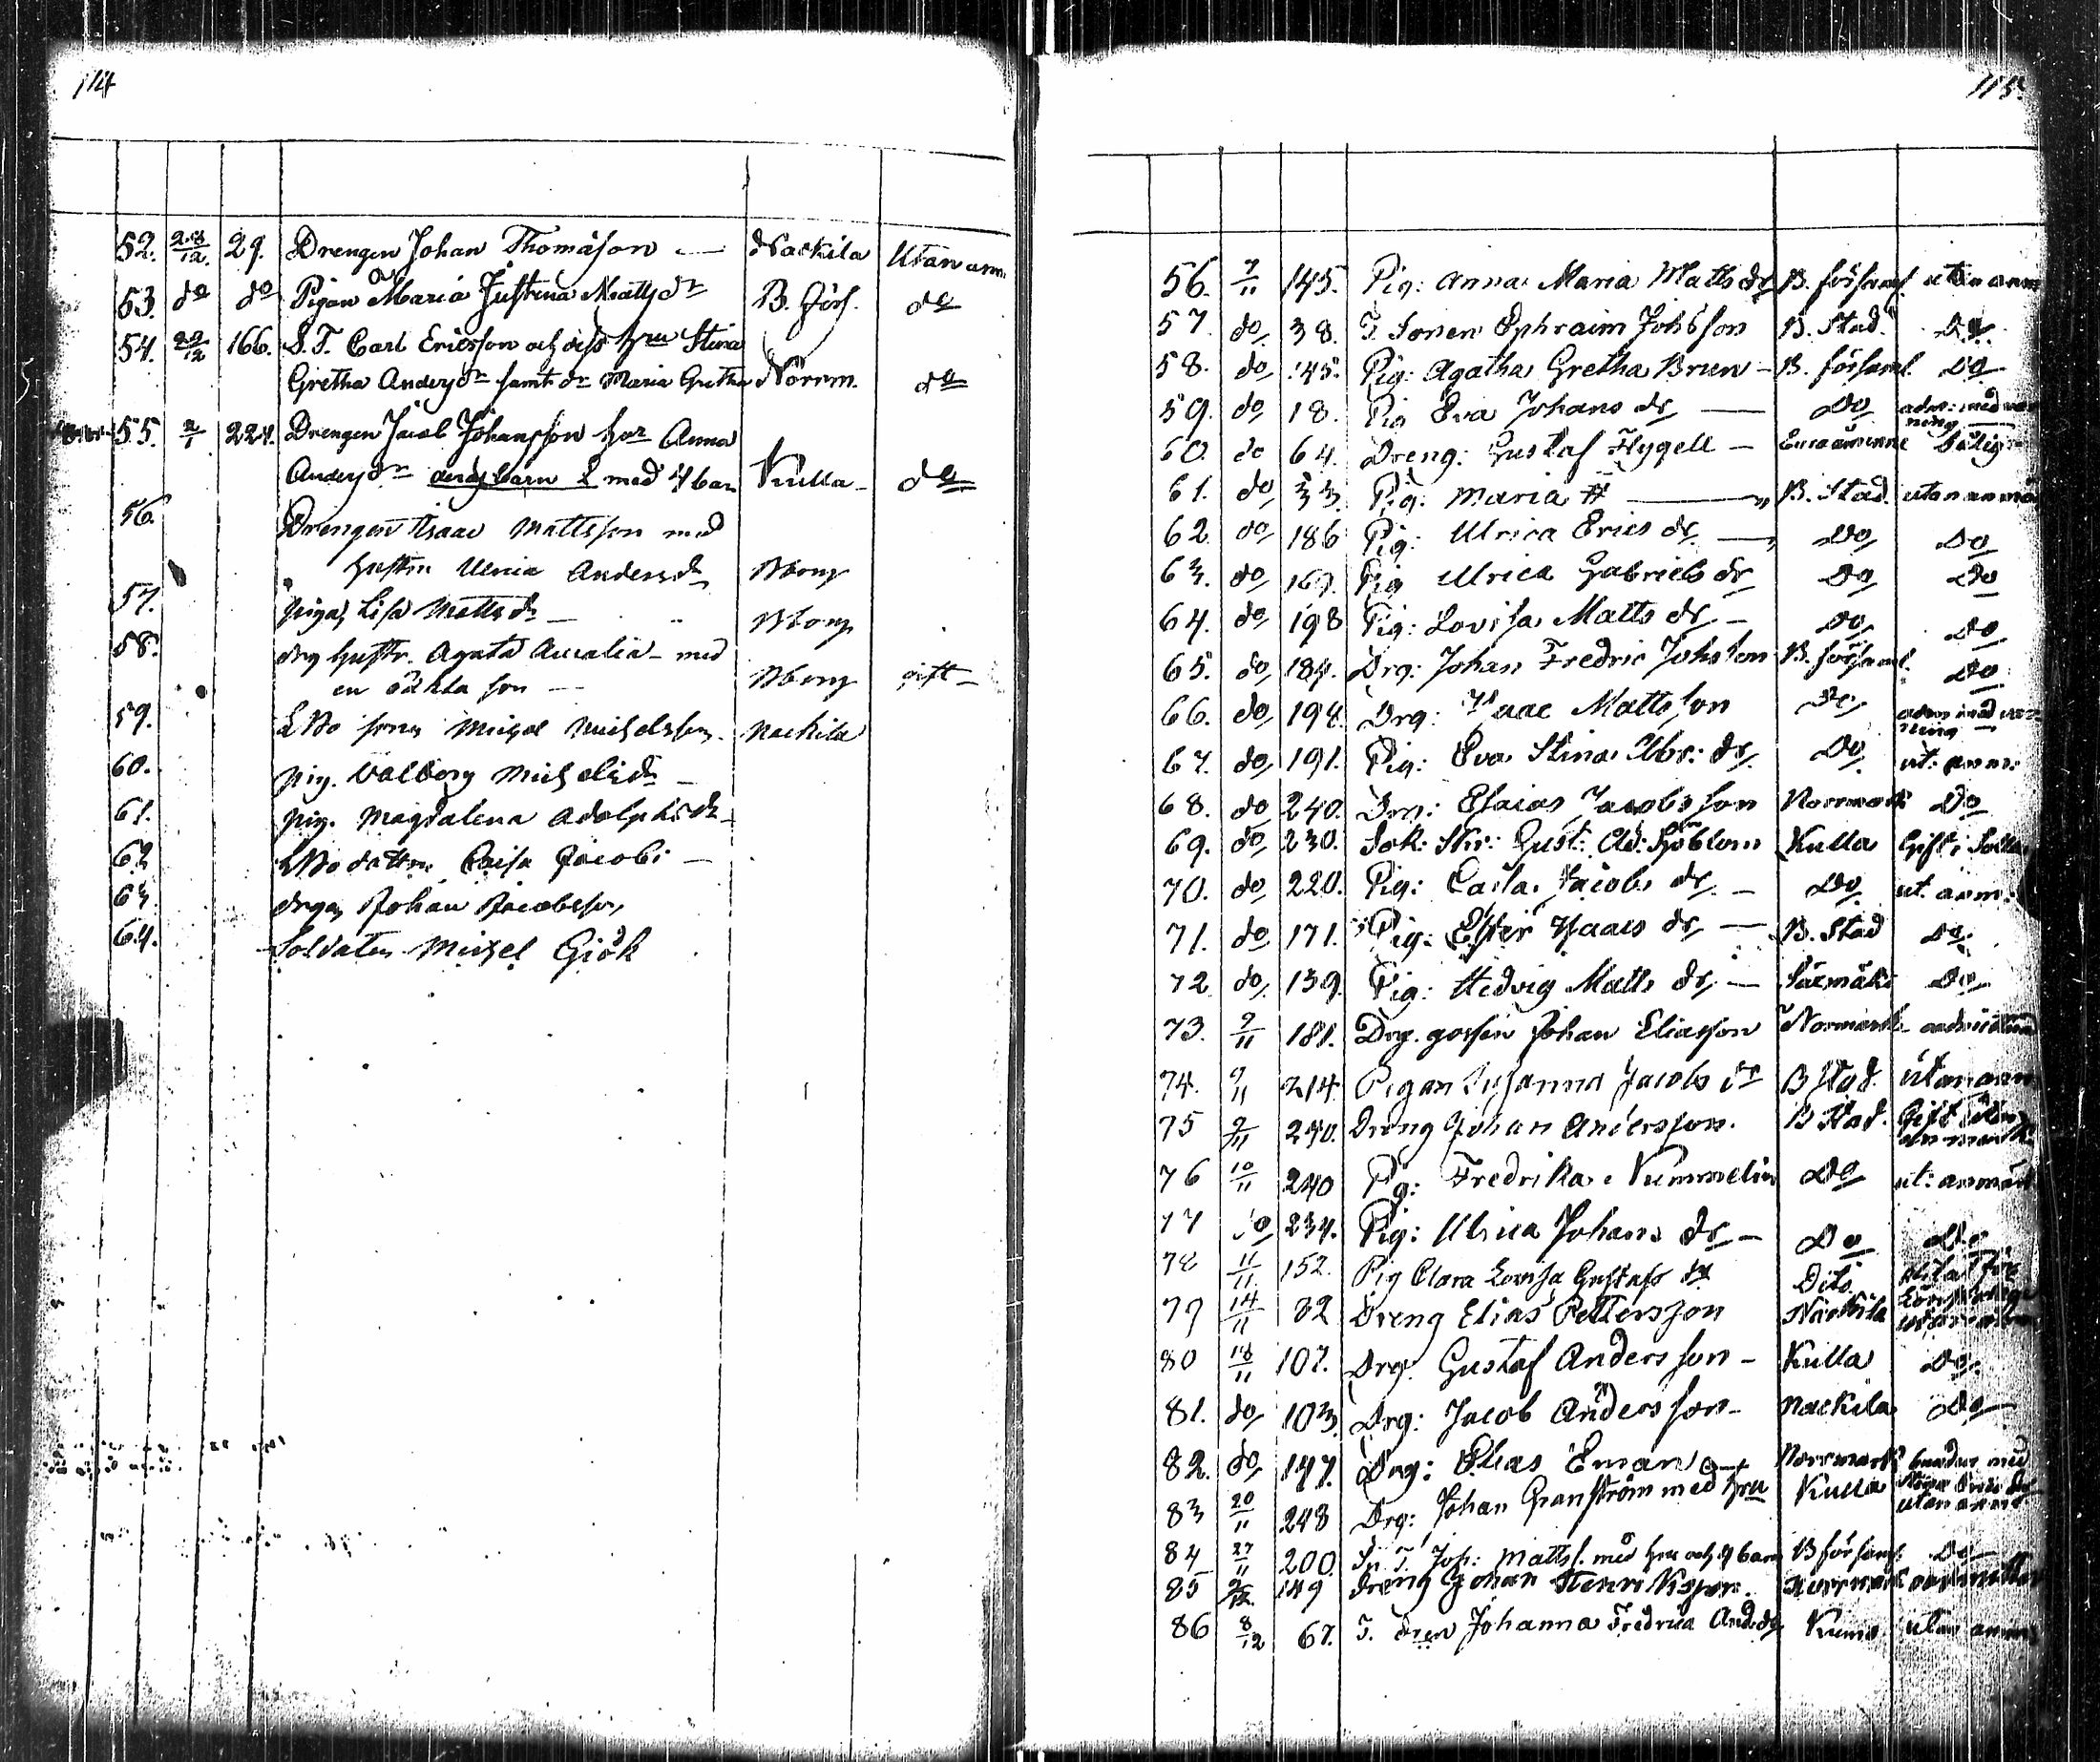 114
52. 28/12. 29. Drengen Johan Thomasson — Nackila Utan anm
53. do do Pigan Maria Justina Matts dr B. förs. do
54. 22/12 166. S. T. Carl Ericsson och diss hru Stina
Gretha Anders dr samt dr Maria Gretha Norrm. do
55. 2/1 224. Drengen Jacob Johansson hor Anna
Anders dr med 4 bar Kulla do
56. Drengen Isaac Mattsson med
hustru Ulrica Anders dr Bborg
57. pigan Lisa Matts dr — Bborg
58. drg hustr. Agata Amalia — med
en oäkta son — Bborg gift —
59. Michel Michelsson Nackila
60. pig. Valborg Michels dr —
61. pig. Magdalena Adolphs dr —
62. Caisa Jacobs —
63. drgn Johan Jacobsson
64. Soldaten Michel Giök
115.
56. 7/11 145. Pig: Anna Maria Matts dr B. församl. utan anm
57. do 38. T. Sonen Ephraim Johsson B. Stad. Do
58. do 145. Pig: Agatha Gretha Brun — B. församl. Do
59. do 18. Pig Eva Johans dr — Do adm: med var
ning
60. do 64. Dreng: Gustaf Flygell —
61. do 33. Pig: Maria — B. Stad. utan anmä
62. do 186 Pig: Ulrica Erics dr — Do Do
63. do 167. Pig Ulrica Gabriels dr Do Do
64. do 198 Pig: Lovisa Matts dr — Do Do
65. do 184. Drg: Johan Fredric Johsson B. församl. Do
66. do 194. Drg: Isaac Mattsson Do adm med var
ning —
67. do 191. Pig: Eva Stina Abr: dr Do ut: anm:
68. do 240. Drg: Esaias Jacobsson Norrmark Do
69. do 230. Sok: Skr: Gust: Ad: Sjöblom Kulla Gift i
70. do 220. Pig: Caisa Jacobs dr — Do ut. anm:
71. do 171. Pig: Ester Isaacs dr — B. Stad Do
72. do 139. Pig: Hedvig Matts dr — Do
73. 9/11 181. Drg. gossen Johan Eliasson Norrmark
74. 9/11 214 Pigan Susanna Jacobs dr B Stad. utan anm
75 9/11 240. Dreng Johan Andersson. B Stad. Gift utan
anmärk
76 10/11 240 Pig: Fredrika Nummelin Do ut: anmärk
77 do 234. Pig: Ulrica Johans dr — Do Do
78 11/11 152. Pig Clara Lovisa Gustafs dr Dito
79 14/11 82 Dreng Elias Pettersson Nackila
80 18/11 107. Drg. Gustaf Andersson — Kulla Do
81. do 103. Drg: Jacob Andersson — Nackila Do
82. do 147. Drg: Elias Eman Norrmark med
83 20/11 248 Drg: Johan Granström med hru Kulla utan anm
84 27/11 200. Joh: Matts s. med hru och 4 barn B församl. Do
85 149 Dreng Johan Henriksson. Norrmark
86 8/12 67. T. dren Johanna Fredrica And: dr Kumo utan anm